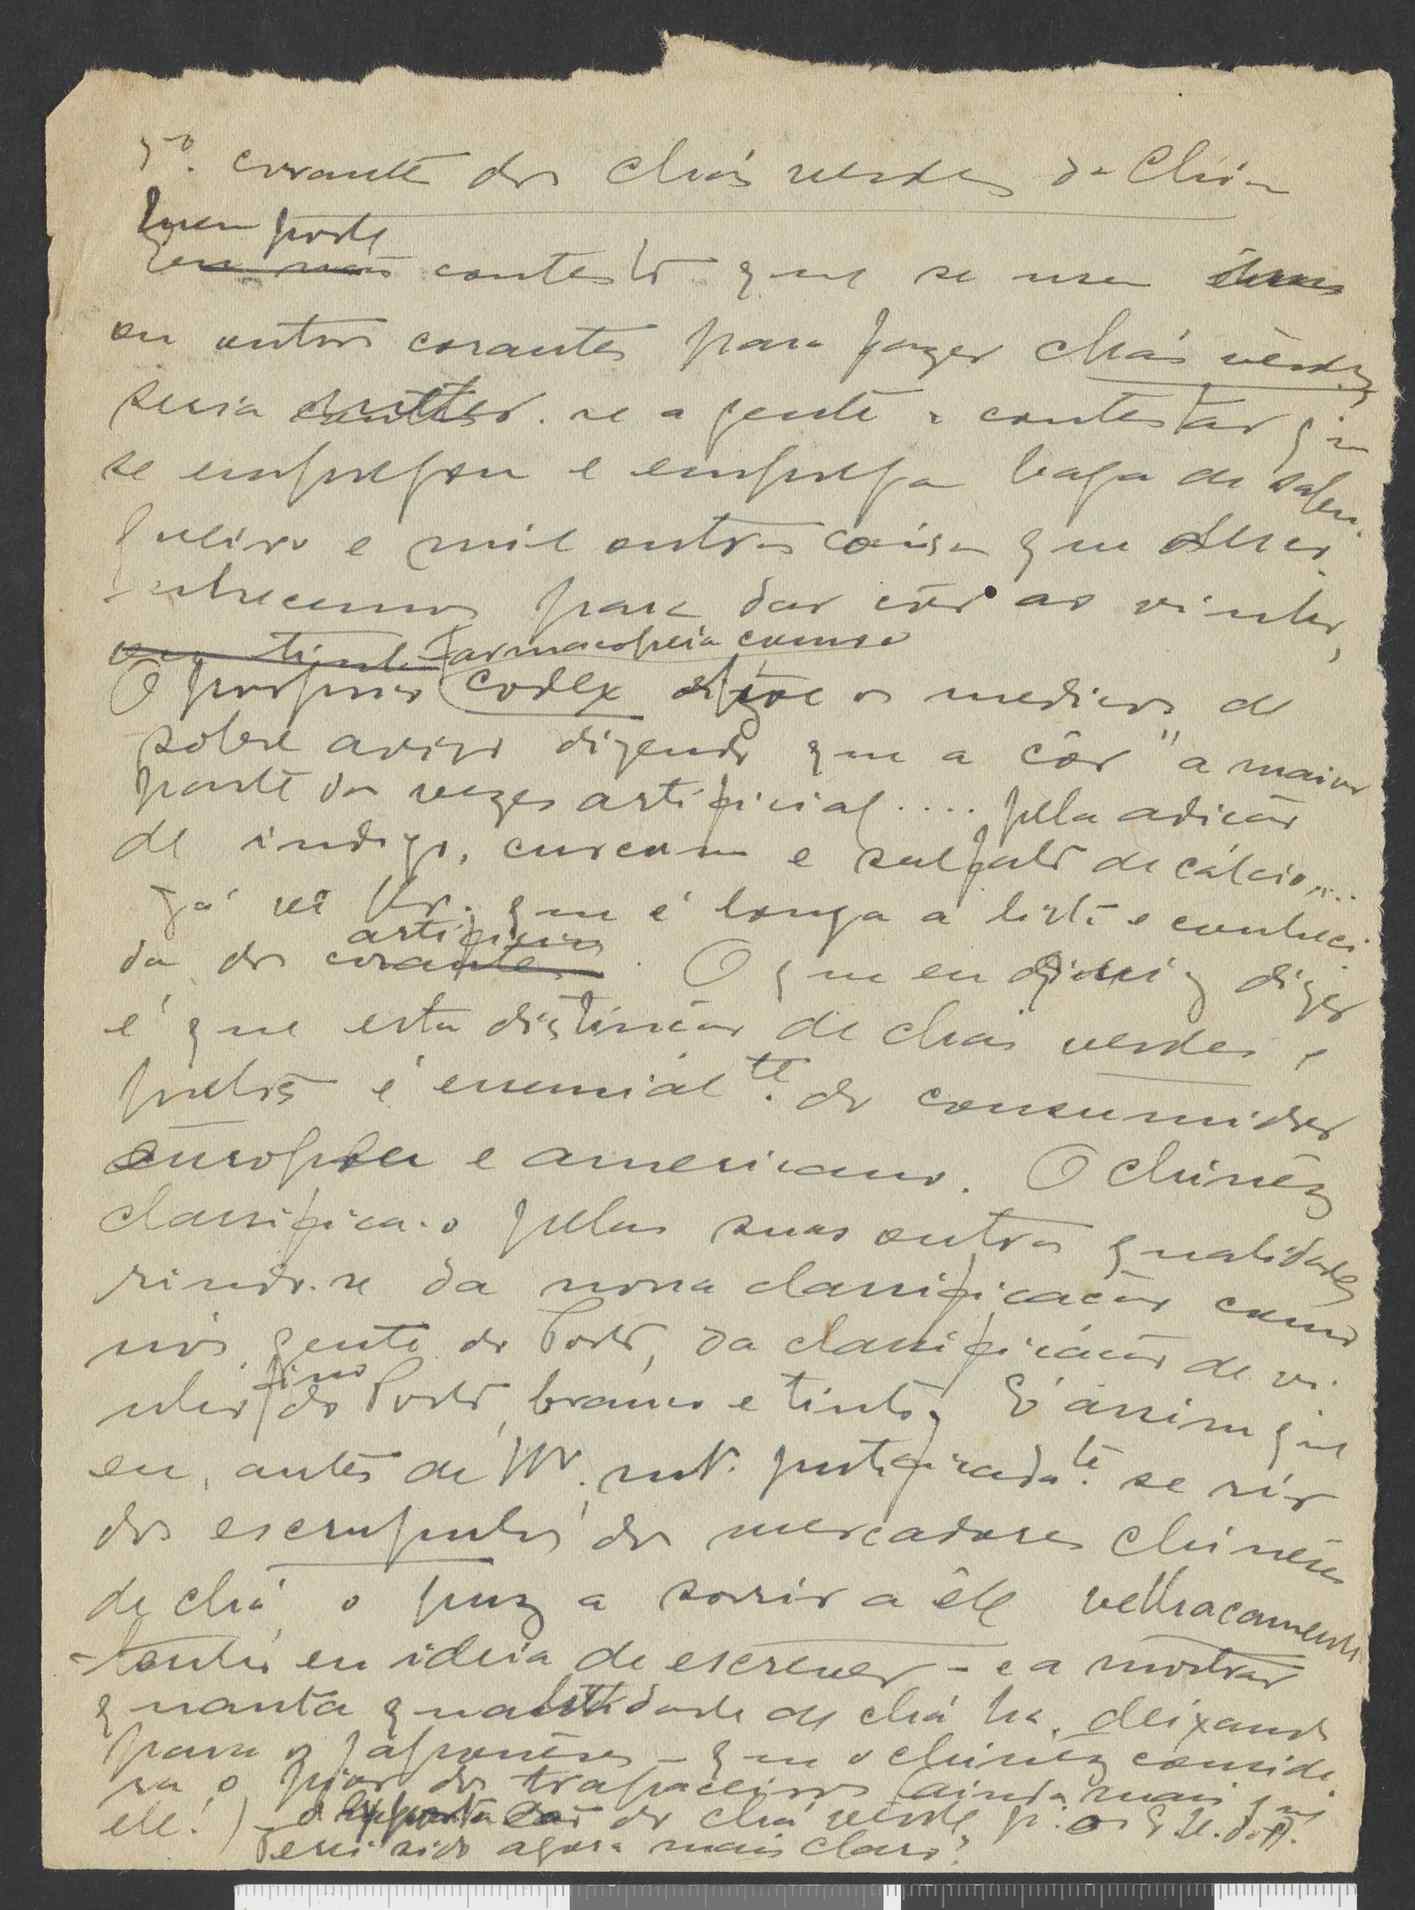 5º. corante dos chás verdes da China
Quem pode
Eu não contesto que se usem
ou outros corantes para fazer chás verdes
seria se a gente a contestar que
se empregou e emprega baga de sabu-
gueiro e mil outras coisas que
nhecemos para dar côr ao vinho,
Farmacopeia como o
O proprio codex os medicos de
sobre aviso dizendo que a côr "a maior
parte das vezes artificial .... pela adição
de indigo, curcuma e sulfato de cálcio....
Já vê Vr. que é longa a lista e conheci-
artificios
da dos corantes. O que eu quiz dizer
é que esta distinção de chás verdes e
pretos é essencialte. do consumidor
europeu e americano. O chinêz
classifica-o pelas suas outras qualidades
rindo-se da nossa classificação como
nós, gente do Porto, da classificação de vi-
fino
nhos do Porto, branco e tinto. E' assim que
eu, antes de Vr. mto. justificadate. se rir
dos escrupulos dos mercadores chinêses
de chá o puz a sorrir a êle velhacamente
- tenho eu ideia de escrever - e a mostrar
quanta qualidade de chá ha, deixando
para os japonêses - que o chinêz conside-
ra o pior dos trapaceiros (ainda mais que
ele!) - a exportação do chá verde p. os E. U. da A.
Terei sido agora mais claro?